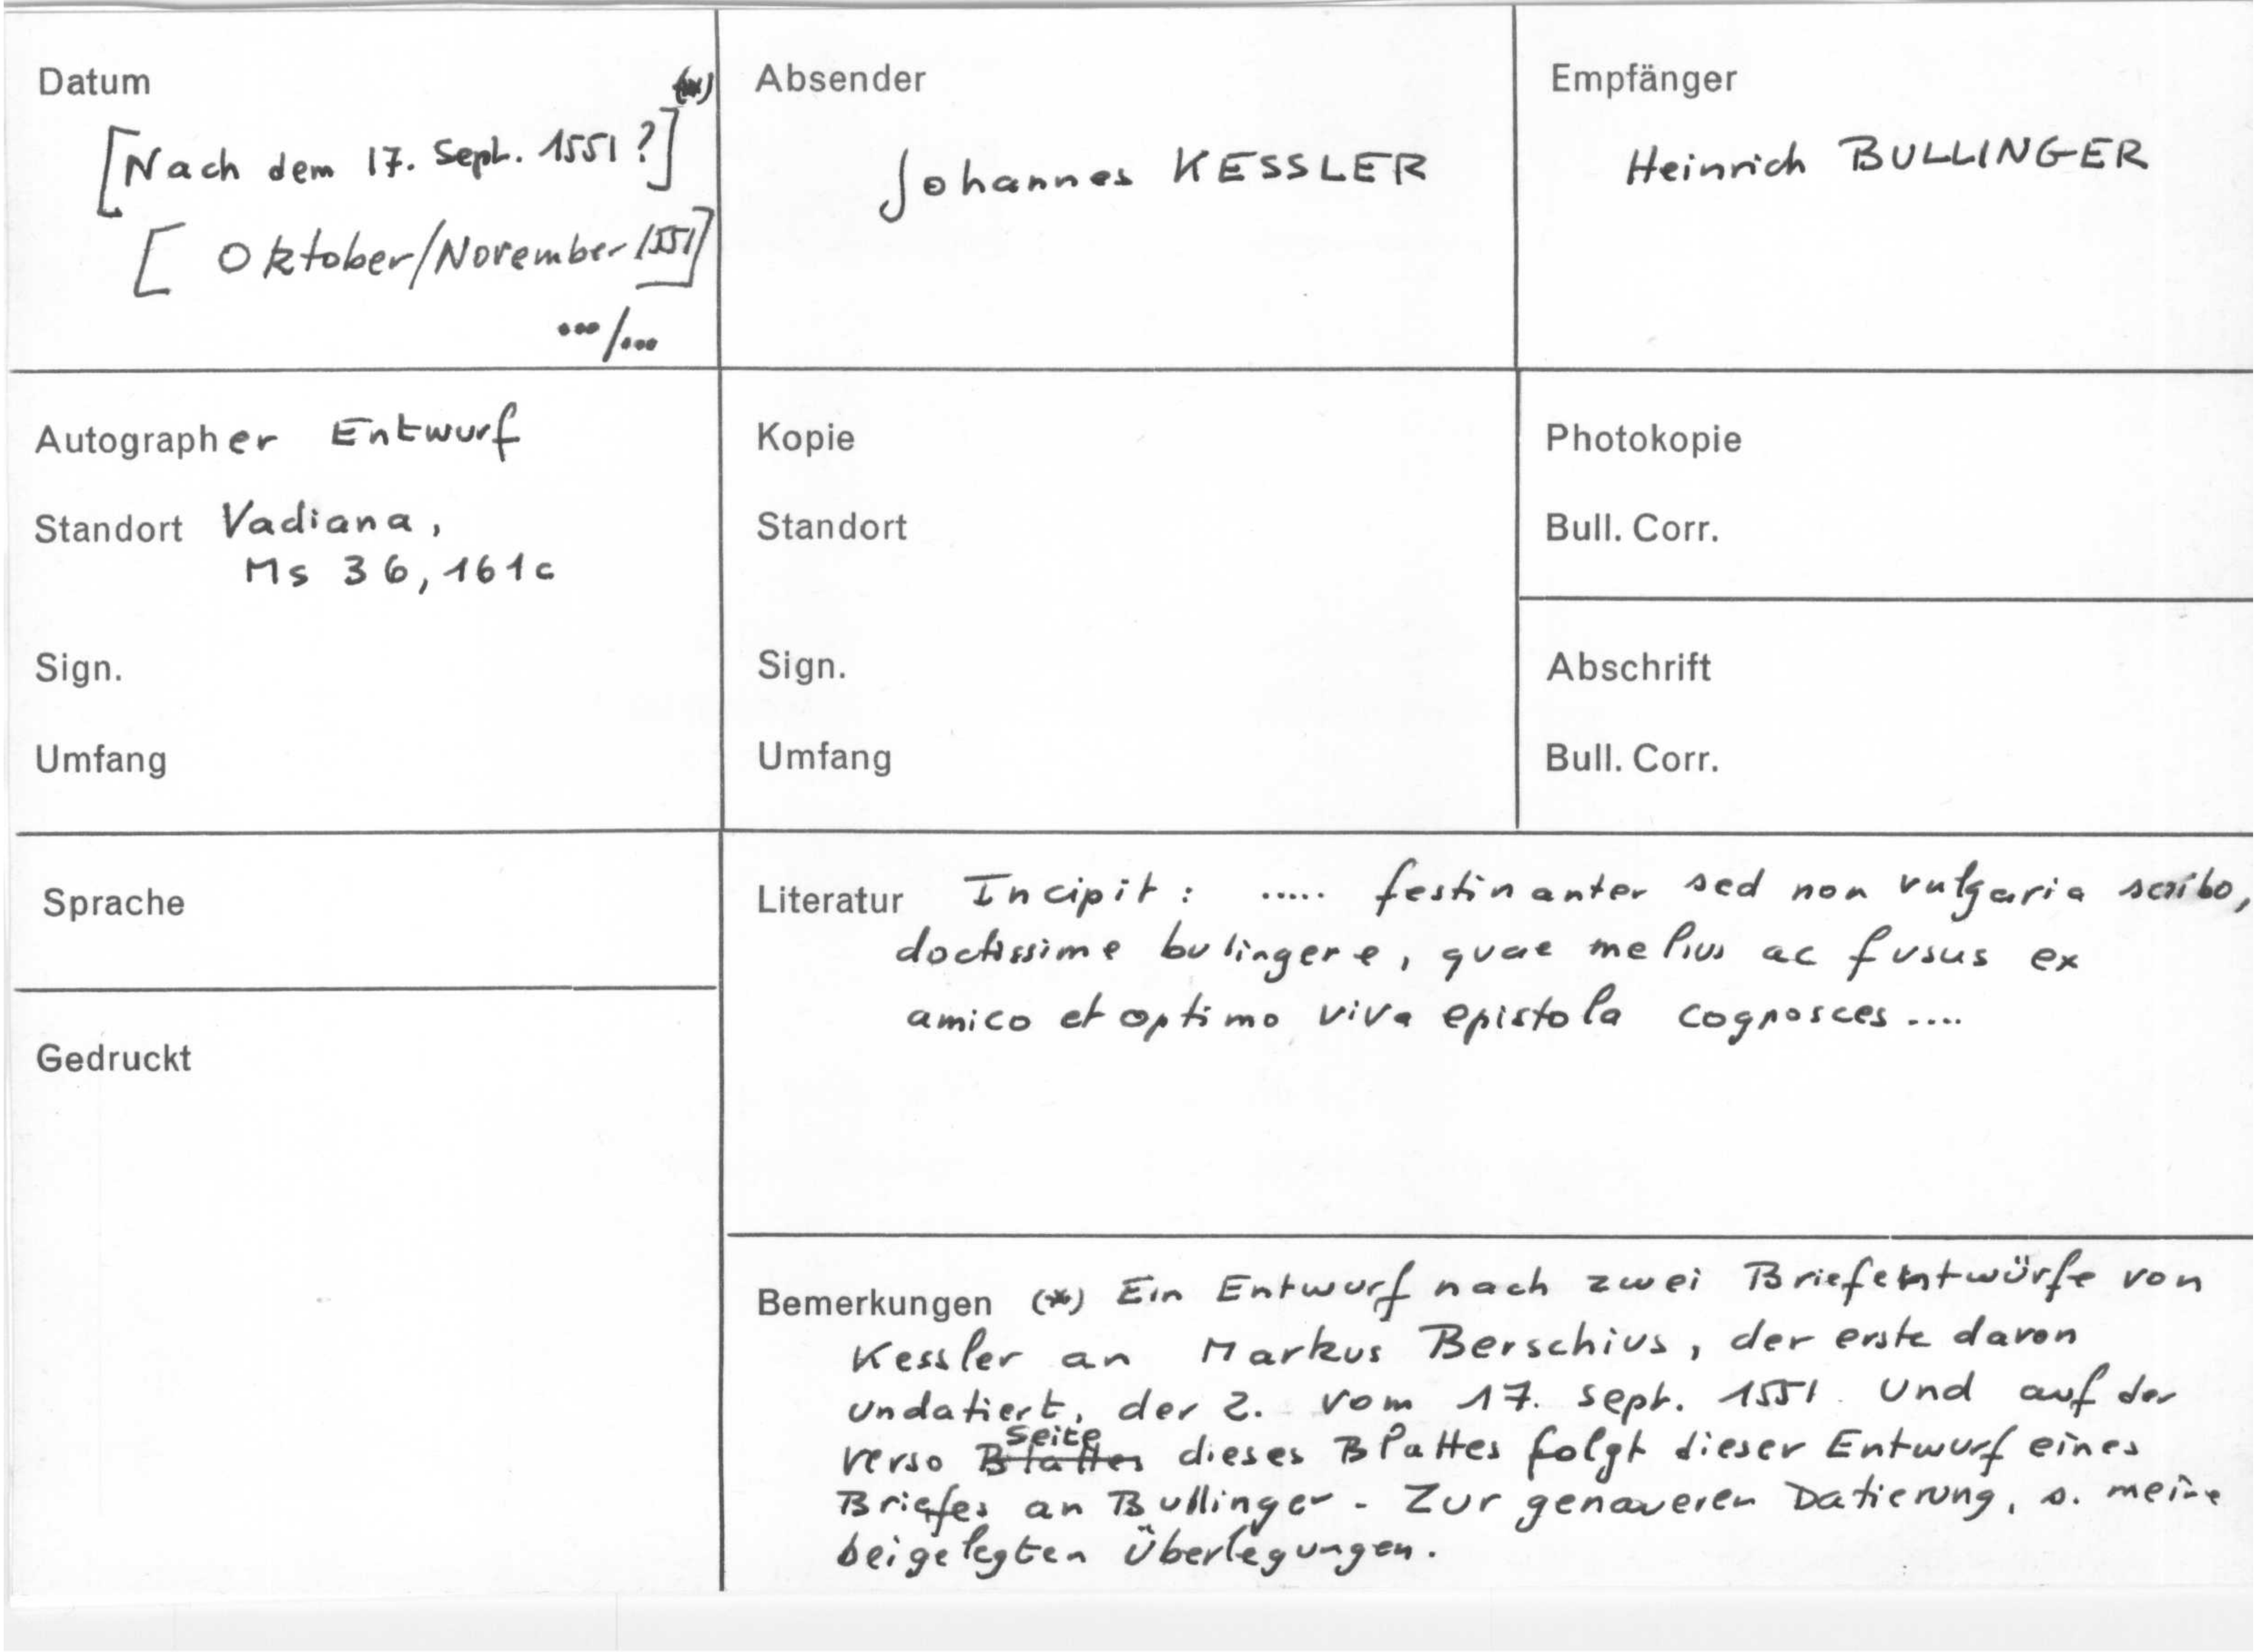 Datum
(*)
[Nach dem 17. Sept. 1551?]
[Oktober/November 1551]
.../...
Absender
Johannes KESSLER
Empfänger
Heinrich BULLINGER
Autographer Entwurf
Standort Vadiana,
Ms 36, 161c
Sign.
Umfang
Kopie
Standort
Sign.
Umfang
Photokopie
Bull. Corr.
Abschrift
Bull. Corr.
Sprache
Gedruckt
Literatur Incipit: ..... festinanter sed non vulgaria scribo,
doctissime bulingere, quae melius ac fusus ex
amico et optimo viva epistola cognosces ....
Bemerkungen (*) Ein Entwurf nach zwei Briefentwürfe von
Kessler an Markus Berschius, der erste davon
undatiert, der 2. vom 17. Sept. 1551. Und auf der
Seite
verso Blattes dieses Blattes folgt dieser Entwurf eines
Briefes an Bullinger. Zur genaueren Datierung, s. meine
beigelegten Überlegungen.